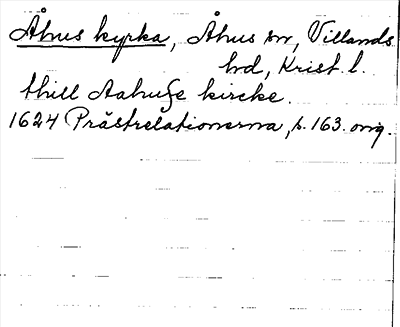 Åhus kyrka, Åhus sn, Villands
hd, Krist. l.
thill Aahuße kircke.
1624 Prästrelationerna, s. 163. orig.